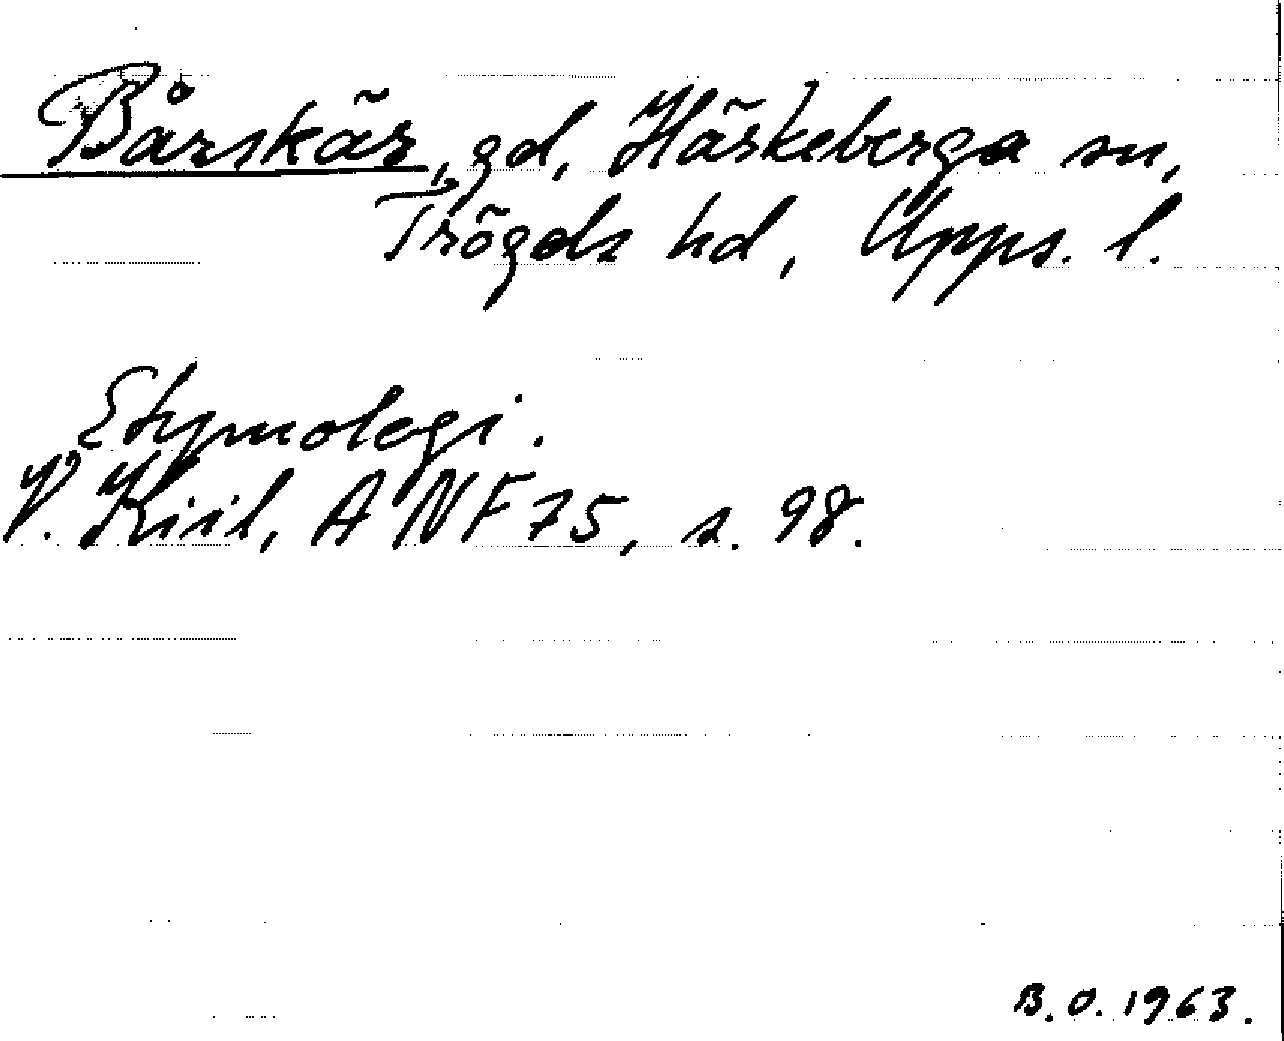 Bårskär, gd, Härkeberga sn,
Trögds hd, Upps. l.
Etymologi.
V. Kiil, ANF 75, s. 98.
B.O. 1963.